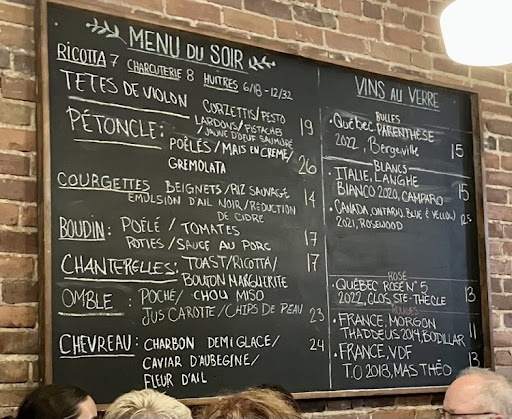 MENU DU SOIR
RICOTTA 7 CHARCUTERIE 8 HUITRES 6/18 - 12/32
TETES DE VIOLON CORZETTIS/PESTO
LARDONS/PISTACHES 19
/JAUNE D'OEUF SAUMURÉ
PÉTONCLE: POÊLÉS/MAIS EN CREME/ 26
GREMOLATA
COURGETTES BEIGNETS/RIZ SAUVAGE 14
EMULSION D'AIL NOIR/REDUCTION
DE CIDRE
BOUDIN: POÊLÉ/TOMATES 17
ROTIES/SAUCE AU PORC
CHANTERELLES: TOAST/RICOTTA/ 17
BOUTON MARGUERITE
OMBLE: POCHÉ/CHOU MISO
JUS CAROTTE/CHIPS DE PEAU 23
CHEVREAU: CHARBON DEMI GLACE/ 24
CAVIAR D'AUBEGINE/
FLEUR D'AIL
VINS AU VERRE
BULLES
• QUÉBEC PARENTHÈSE
2022, Bergeville 15
BLANCS
• ITALIE, LANGHE
BIANCO 2020, CAMPARO 15
• CANADA, ONTARIO, BLUE & YELLOW
2021, ROSEWOOD 12.5
ROSÉ
QUÉBEC ROSÉ N° 5
2022, CLOS STE-THÈCLE 13
ROUGES
• FRANCE, MORGON
THADDEUS 2014, BODILLARD 11
• FRANCE, VDF
T.O 2018, MAS THÉO 13